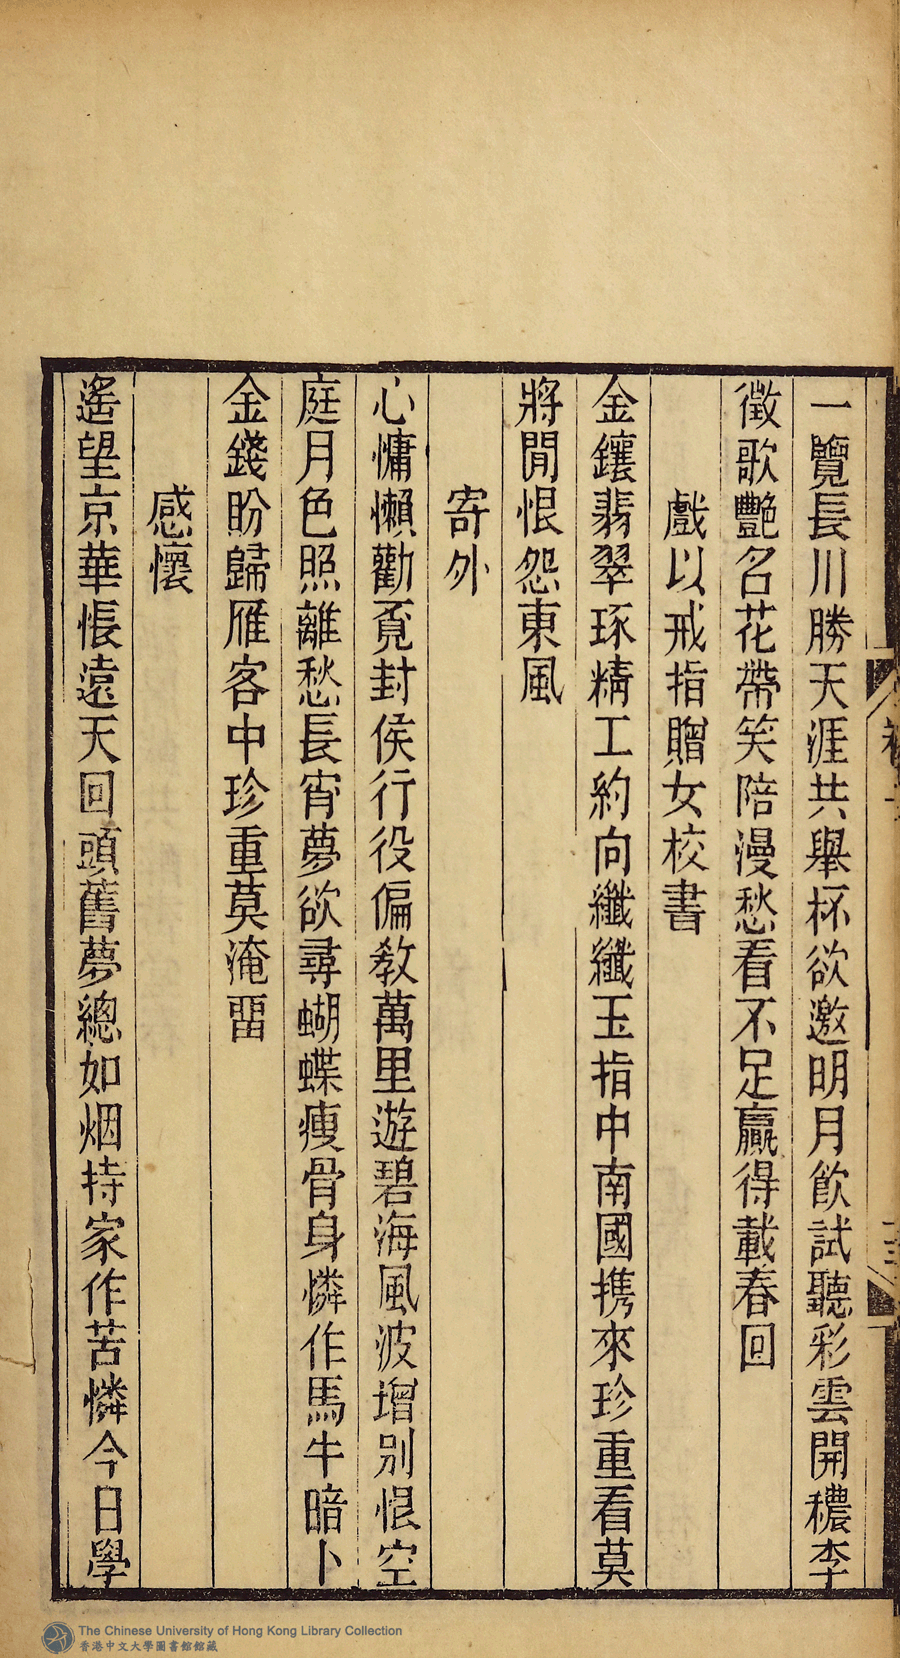 一覽長川勝天涯共舉杯欲邀明月飲試聽彩雲開穠李
徵歌艷名花帶笑陪漫愁看不足贏得載春回
戲以戒指贈女校書
金鑲翡翠琢精工約向纖纖玉指中南國携來珍重看莫
將閒恨怨東風
寄外
心慵懶勸覔封侯行役偏教萬里遊碧海風波增別恨空
庭月色照離愁長宵夢欲尋蝴蝶瘦骨身憐作馬牛暗卜
金錢盼歸雁客中珍重莫淹畱
感懷
遙望京華悵遠天回頭舊夢總如烟持家作苦憐今日學
The Chinese University of Hong Kong Library Collection
香港中文大學圖書館館藏